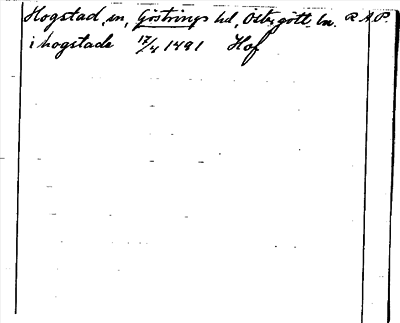 Hogstad, sn, Göstrings hd, Östergötl. ln. R.A.P.
i hogstade 17/4 1491 Hof